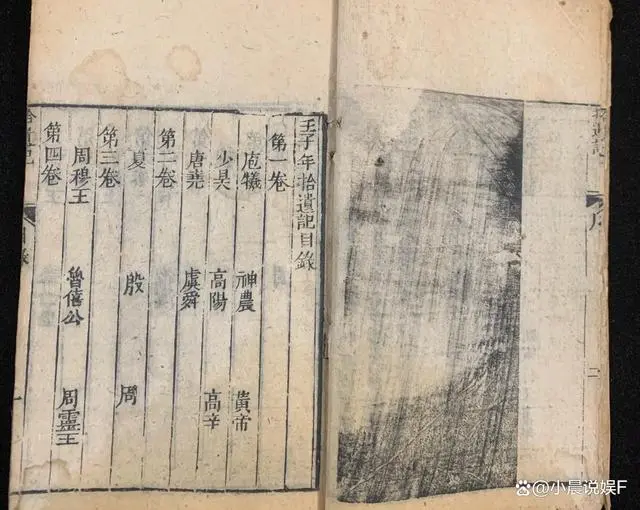 拾遺記
序
二
王子年拾遺記目錄
第一卷
庖犧 神農 黃帝
少昊 高陽 高辛
唐堯 虞舜
第二卷
夏 殷 周
第三卷
周穆王 魯僖公 周靈王
第四卷
拾遺記
目錄
一
小晨说娱F